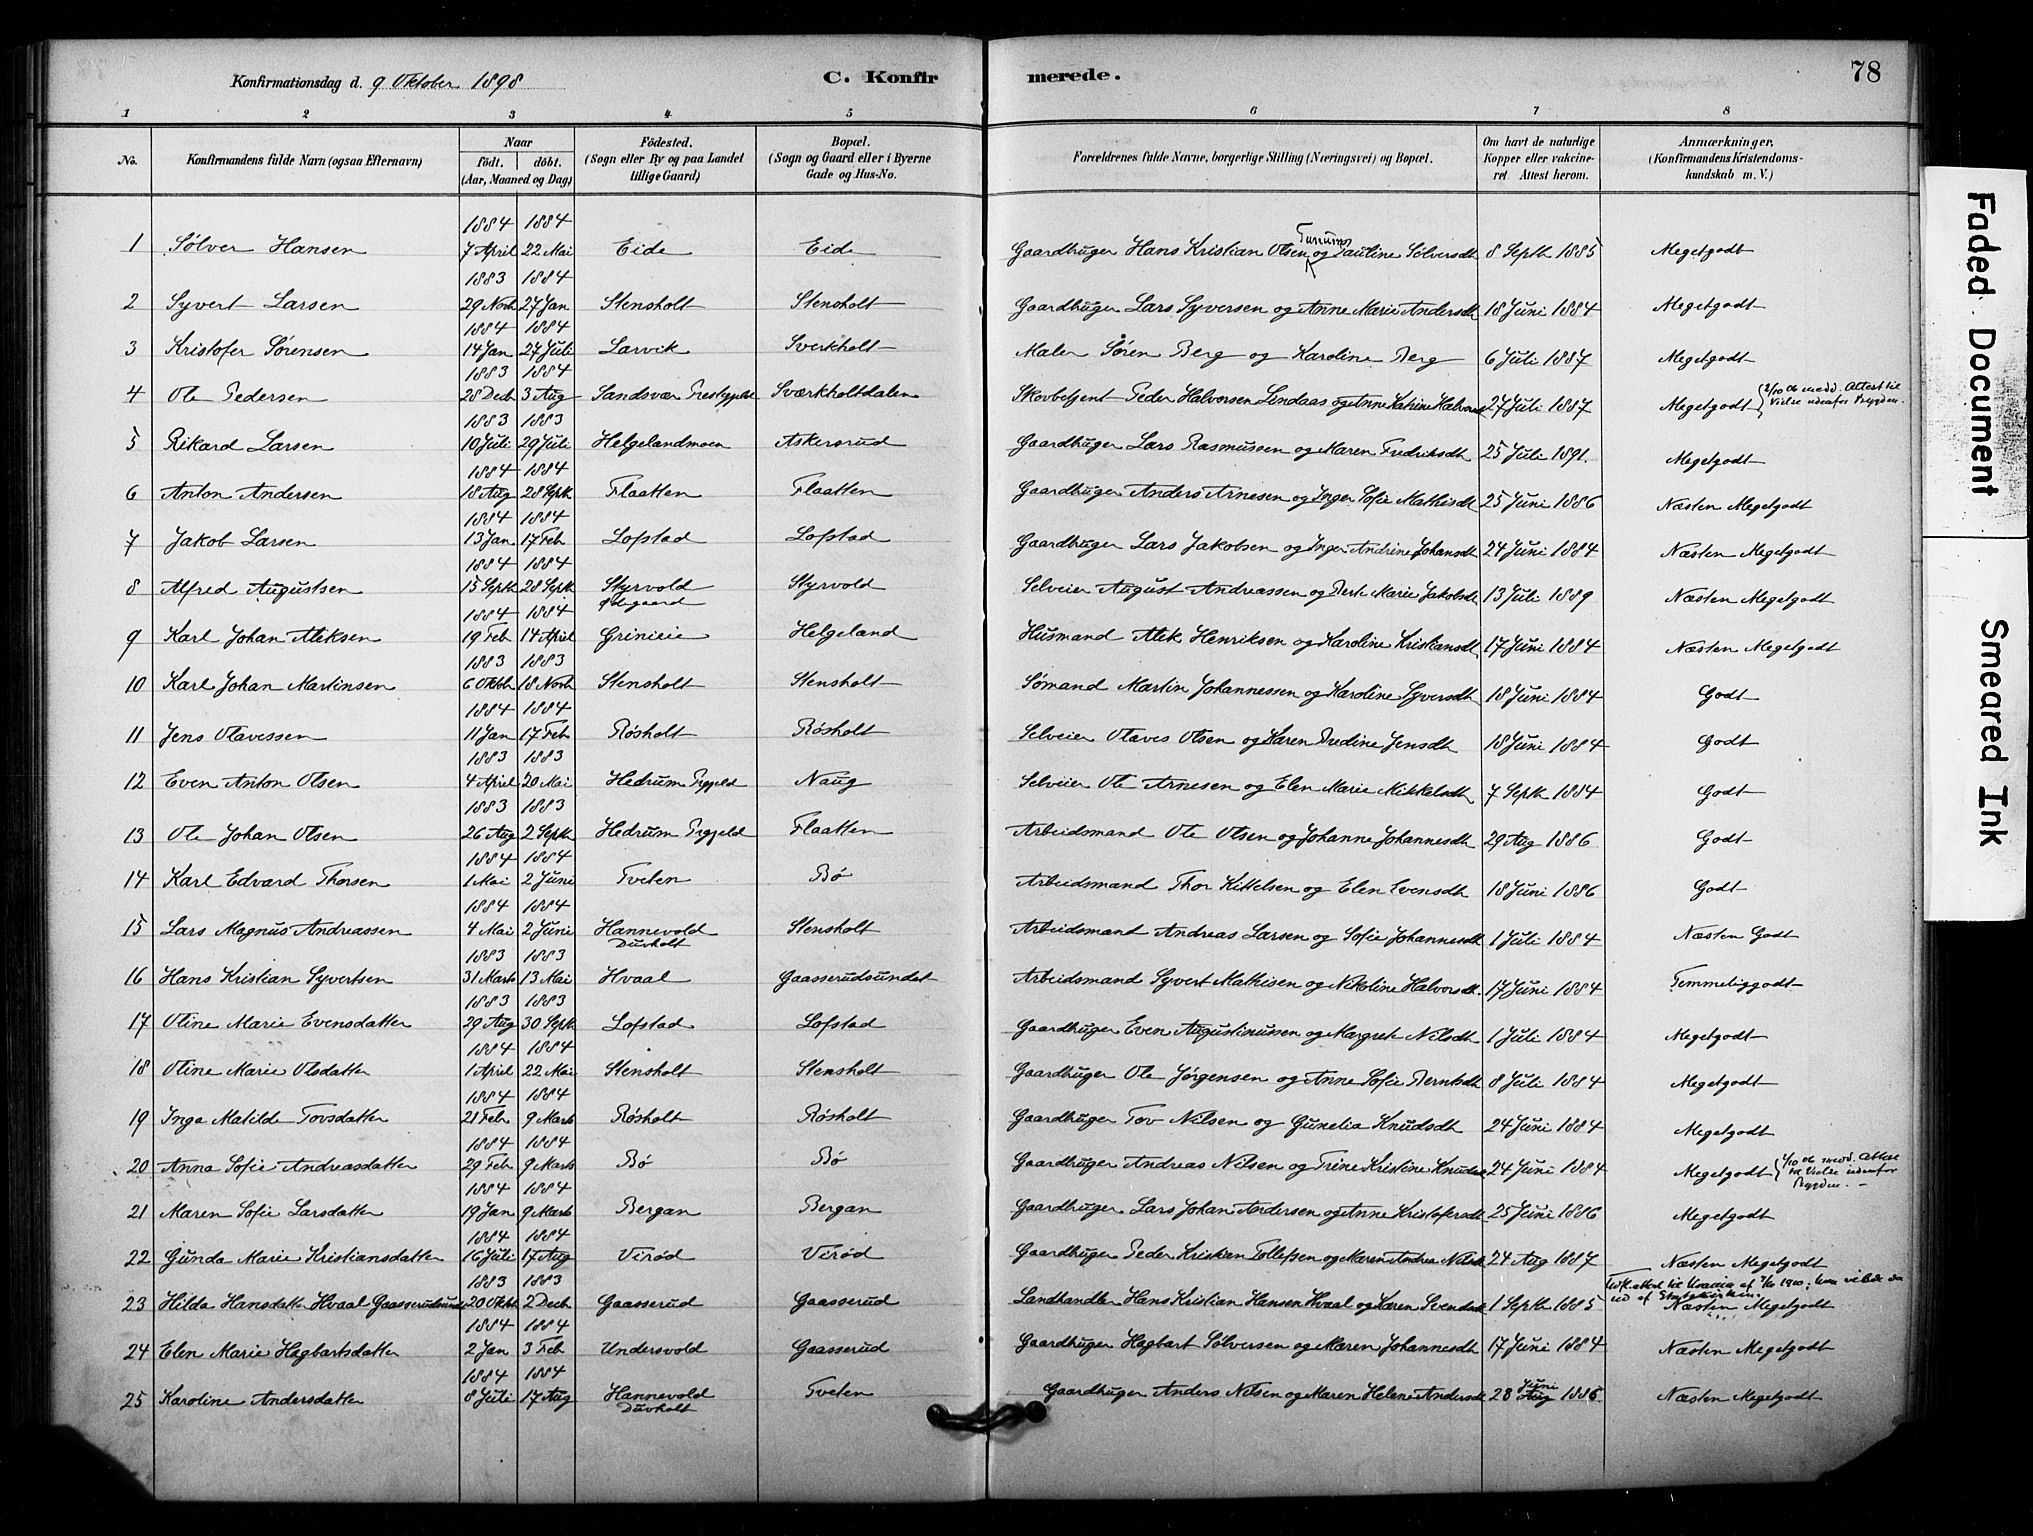 Konfirmationsdag d. 9 Oktober 1898 C. Konfirmerede. 78
1 2 3 4 5 6 7 8
No. Konfirmandens fulde Navn (ogsaa Efternavn) Naar födt. döbt. (Aar, Maaned og Dag) Födested. (Sogn eller By og paa Landet tillige Gaard) Bopæl. (Sogn og Gaard eller i Byerne Gade og Hus-No. Forældrenes fulde Navne, borgerlige Stilling (Næringsvei) og Bopæl. Om havt de naturlige Kopper eller vakcineret. Attest herom. Anmærkninger, (Konfirmandens Kristendomskundskab m. V.)
1884 1884
1 Sølver Hansen 7 April 22 Mai Eide Eide Gaardbruger Hans Kristian Olsen og Pauline Sølversdt 8 Septb 1885 Megetgodt
1883 1884
2 Syvert Larsen 29 Novb 27 Jan Stensholt Stensholt Gaardbruger Lars Syversen og Anne Marie Andersdt 18 Juni 1884 Megetgodt
1884 1884
3 Kristofer Sørensen 14 Jan 27 Juli Larvik Sverkholt Maler Søren Berg og Karoline Berg 6 Juli 1887 Megetgodt
1883 1884
4 Ole Pedersen 28 Decb 3 Aug Sandsvær Prestegjeld Sværkholtdalen Skovbetjent Peder Halvorsen Lindaas og Anne Katrine Halvorsdt 27 Juli 1887 Megetgodt { 2/10 06 medd. Attest til Vielse udenfor Bygden.
1883 1883
5 Rikard Larsen 10 Juli 29 Juli Helgelandmoen Askersrud Gaardbruger Lars Rasmussen og Maren Fredriksdt 25 Juli 1891. Megetgodt
1884 1884
6 Anton Andersen 18 Aug 28 Septb Flaatten Flaatten Gaardbruger Anders Arnesen og Inger Sofie Mathisdt 25 Juni 1886 Næsten Megetgodt
1884 1884
7 Jakob Larsen 13 Jan 17 Feb Lofstad Lofstad Gaardbruger Lars Jakobsen og Inger Andrine Johansdt 24 Juni 1884 Næsten Megetgodt
1884 1884
8 Alfred Augustsen 15 Septb 28 Septb Styrvold Ødegaard Styrvold Selveier August Andreassen og Berte Marie Jakobsdt 13 Juli 1889 Næsten Megetgodt
1884 1884
9 Karl Johan Aleksen 19 Feb 14 April Grinieie Helgeland Husmand Alek Henriksen og Karoline Kristiansdt 17 Juni 1884 Næsten Megetgodt
1883 1883
10 Karl Johan Martinsen 6 Oktb 18 Novb Stensholt Stensholt Sømand Martin Johannessen og Karoline Syversdt 18 Juni 1884 Godt
1884 1884
11 Jens Olavessen 11 Jan 17 Feb Røsholt Røsholt Selveier Olaves Olsen og Karen Bredine Jensdt 18 Juni 1884 Godt
1883 1883
12 Even Anton Olsen 4 April 20 Mai Hedrum Prgjeld Naug Selveier Ole Arnesen og Elen Marie Mikkelsdt 7 Septb 1884 Godt
1883 1883
13 Ole Johan Olsen 26 Aug 2 Septb Hedrum Prgjeld Flaatten Arbeidsmand Ole Olsen og Johanne Johannesdt 29 Aug 1886 Godt
1884 1884
14 Karl Edvard Thorsen 1 Mai 2 Juni Tveten Bø Arbeidsmand Thor Kittelsen og Elen Evensdt 18 Juni 1886 Godt
1884 1884
15 Lars Magnus Andreassen 4 Mai 2 Juni Hannevold Duvholt Stensholt Arbeidsmand Andreas Larsen og Sofie Johannesdt 1 Juli 1884 Næsten Godt
1883 1883
16 Hans Kristian Syvertsen 31 Marts 13 Mai Hvaal Gaasserudsundet Arbeidsmand Syvert Mathisen og Nikoline Halvorsdt 17 Juni 1884 Temmeliggodt
1883 1883
17 Oline Marie Evensdatter 29 Aug 30 Septb Lofstad Lofstad Gaardbruger Even Augustinussen og Margrete Nilsdt 1 Juli 1884 Megetgodt
1884 1884
18 Oline Marie Olsdatter 1 April 22 Mai Stensholt Stensholt Gaardbruger Ole Jørgensen og Anne Sofie Berntsdt 8 Juli 1884 Megetgodt
1884 1884
19 Inga Matilde Tovsdatter 21 Feb 9 Marts Røsholt Røsholt Gaardbruger Tov Nilsen og Gunelia Knudsdt 24 Juni 1884 Megetgodt
1884 1884
20 Anna Sofie Andreasdatter 29 Feb 9 Marts Bø Bø Gaardbruger Andreas Nilsen og Trine Kristine Knudsdt 24 Juni 1884 Megetgodt { 2/10 06 medd. Attest til Vielse udenfor Bygden.
1884 1884
21 Maren Sofie Larsdatter 19 Jan 9 Marts Bergan Bergan Gaardbruger Lars Johan Andersen og Anne Kristofersdt 25 Juni 1886 Megetgodt
1884 1884
22 Gunda Marie Kristiansdatter 16 Juli 17 Aug Virød Virød Gaardbruger Peder Kristian Tollefsen og Maren Andrea Nilsdt 24 Aug 1887 Næsten Megetgodt
1883 1883
23 Hilda Hansdatter Hvaal Gaasserudsund 20 Oktb 2 Decb Gaasserud Gaasserud Landhandler Hans Kristian Hansen Hvaal og Karen Svendsdt 1 Septb 1885 ud af Statskirken. Næsten Megetgodt
1884 1884
24 Elen Marie Hagbartsdatter 2 Jan 3 Feb Undersvold Gaasserud Gaardbruger Hagbart Sølversen og Maren Johannesdt 17 Juni 1884 Næsten Megetgodt
1884 1884
25 Karoline Andersdatter 8 Juli 17 Aug Hannevold Duvholt Tveten Gaardbruger Anders Nilsen og Maren Helene Andersdt 28 Aug Juni 1886. Næsten Megetgodt
Faded Document
Smeared Ink